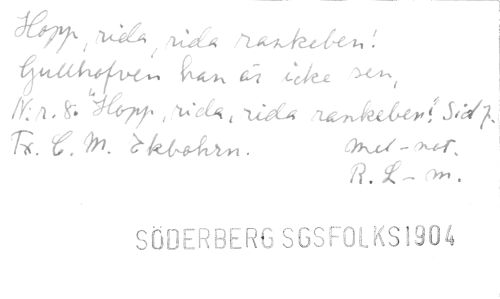 Hopp, rida, rida rankeben!
Gullhofven han är icke sen,
N:r 8. "Hopp, rida, rida rankeben!" Sid 7.
Fr. C. M. Ekbohrn. mel-not.
R. L-m.
SÖDERBERG SGSFOLKS1904